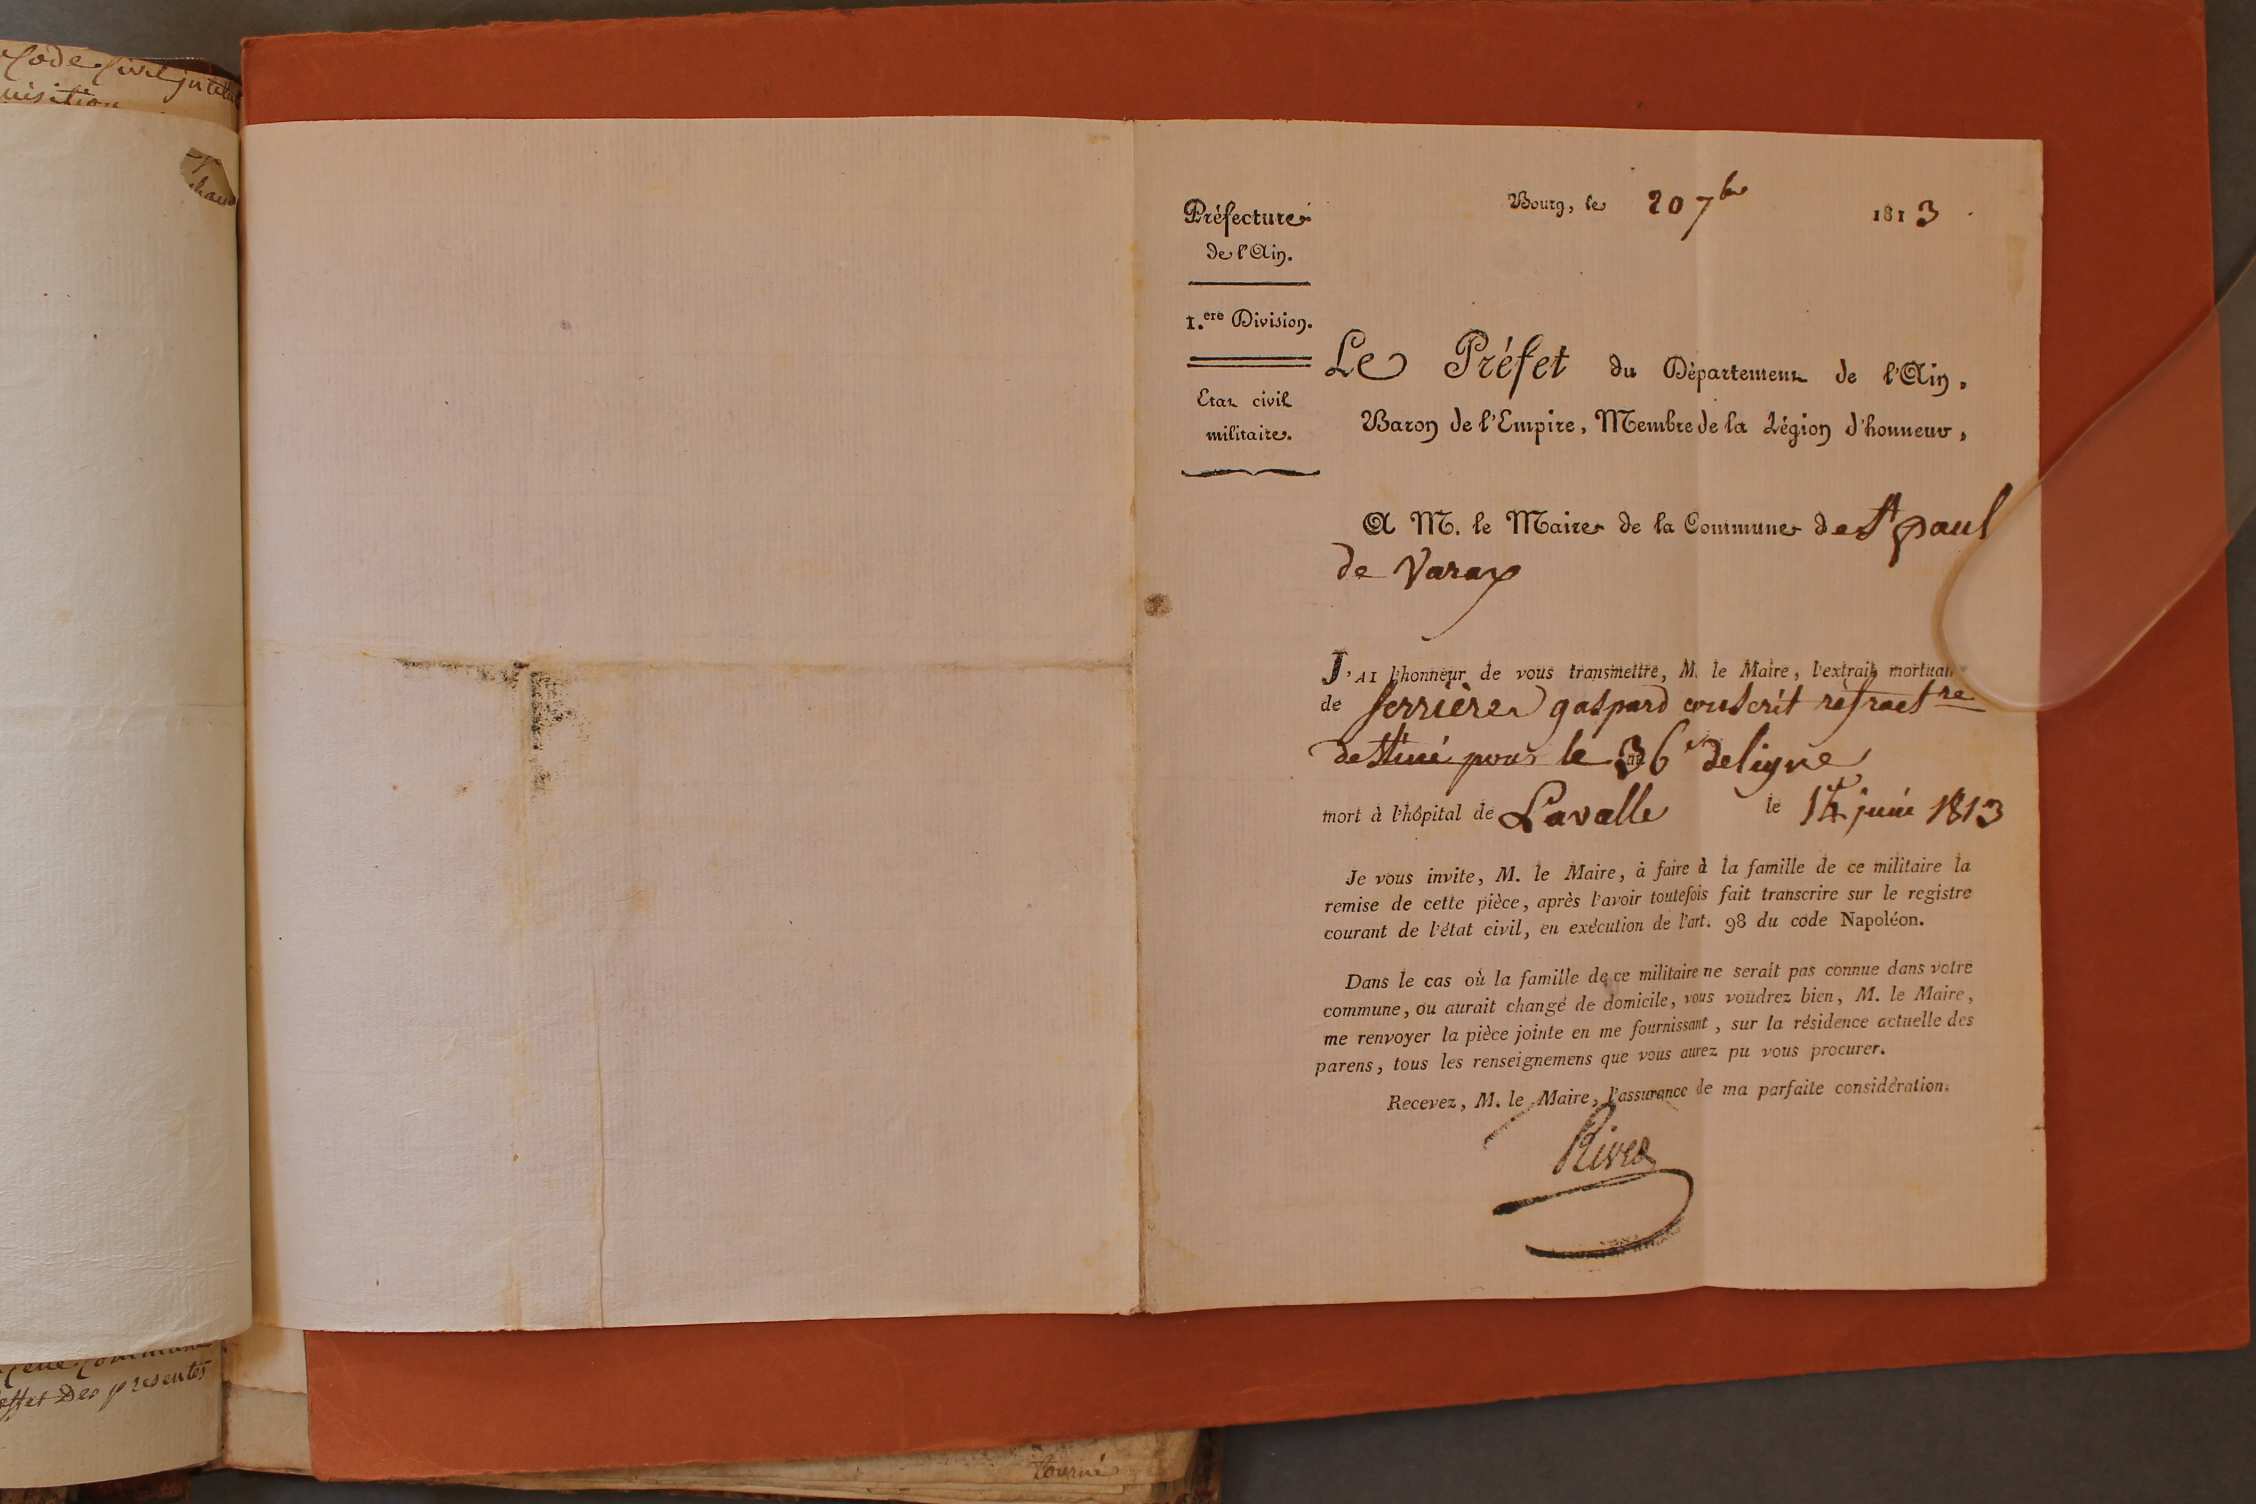 Code Civil intitul
uisition
Préfecture
de l'Ain.
1.ere Division.
Etat civil
militaire.
Bourg, le 20 7bre 1813
Le Préfet du Département de l'Ain,
Baron de l'Empire, Membre de la Légion d'honneur,
A M. le Maire de la Commune de St paul
de Varax
J'AI l'honneur de vous transmettre, M. le Maire, l'extrait mortuai
de ferrière gaspard conscrit réfractre
destiné pour le 36e de ligne
mort à l'hôpital de Lavalle le 14 juin 1813
Je vous invite, M. le Maire, à faire à la famille de ce militaire la
remise de cette pièce, après l'avoir toutefois fait transcrire sur le registre
courant de l'état civil, en exécution de l'art. 98 du code Napoléon.
Dans le cas où la famille de ce militaire ne serait pas connue dans votre
commune, ou aurait changé de domicile, vous voudrez bien, M. le Maire,
me renvoyer la pièce jointe en me fournissant, sur la résidence actuelle des
parens, tous les renseignemens que vous aurez pu vous procurer.
Recevez, M. le Maire, l'assurance de ma parfaite considération.
Rivet
effet Des presentes